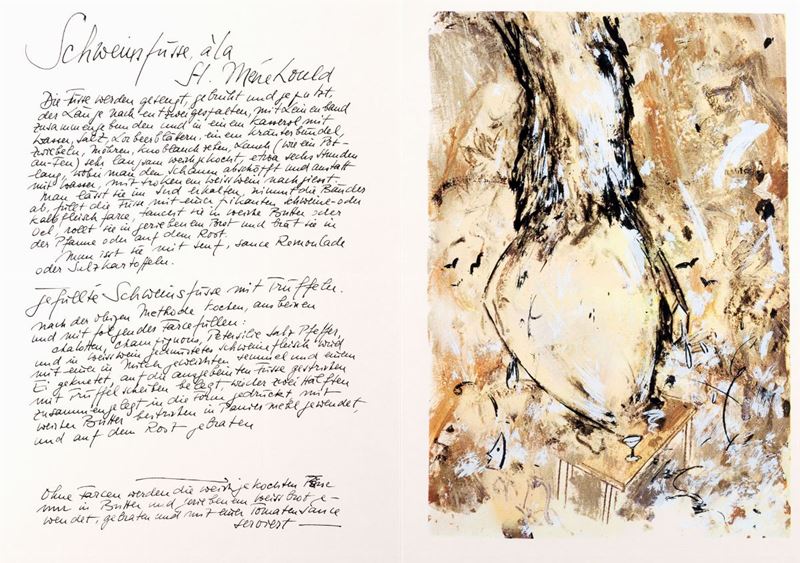 Schweinsfüsse, à la
St. Ménehould
Die Füsse werden gesengt, gebrüht und geputzt,
der Länge nach entzweigespalten, mit Leinenband
zusammengebunden und in einem Kasserol mit
Wasser, Salz, Lorbeerblättern, einem Kräuterbündel,
Zwiebeln, Möhren, Knoblauchzehen, Lauch (wie ein Pot-
au-Feu) sehr langsam weichgekocht, etwa sechs Stunden
lang, wobei man den Schaum abschöpft und anstatt
mit Wasser, mit trokenem Weisswein nachgiesst.
Man lässt sie im Sud erkalten, nimmt die Bänder
ab, füllt die Füsse mit einer pikanten Schweine- oder
Kalbfleischfarce, taucht sie in weiche Butter oder
Oel, rollt sie in geriebenem Brot und brät sie in
der Pfanne oder auf dem Rost.
Man isst sie mit Senf, Sauce Remoulade
oder Salzkartoffeln.
Gefüllte Schweinsfüsse mit Trüffeln.
nach der obigen Methode kochen, ausbeinen
und mit folgender Farce füllen:
Chalotten, Champignons, Petersilie Salz Pfeffer,
und in Weisswein gedünstetes Schweinefleisch wird
mit einer in Milch geweichten Semmel und einem
Ei geknetet, auf die ausgebeinten Füsse gestrichen
mit Trüffelscheiben belegt, welcher zwei Hälften
zusammengelegt in die Form gedrückt mit
weicher Butter bestrichen in Paniermehl gewendet,
und auf dem Rost gebraten
Ohne Farcen werden die weichgekochten Füsse
nur in Butter und geriebenem Weissbrot ge-
wendet, gebraten und mit einer Tomatensauce
serviert